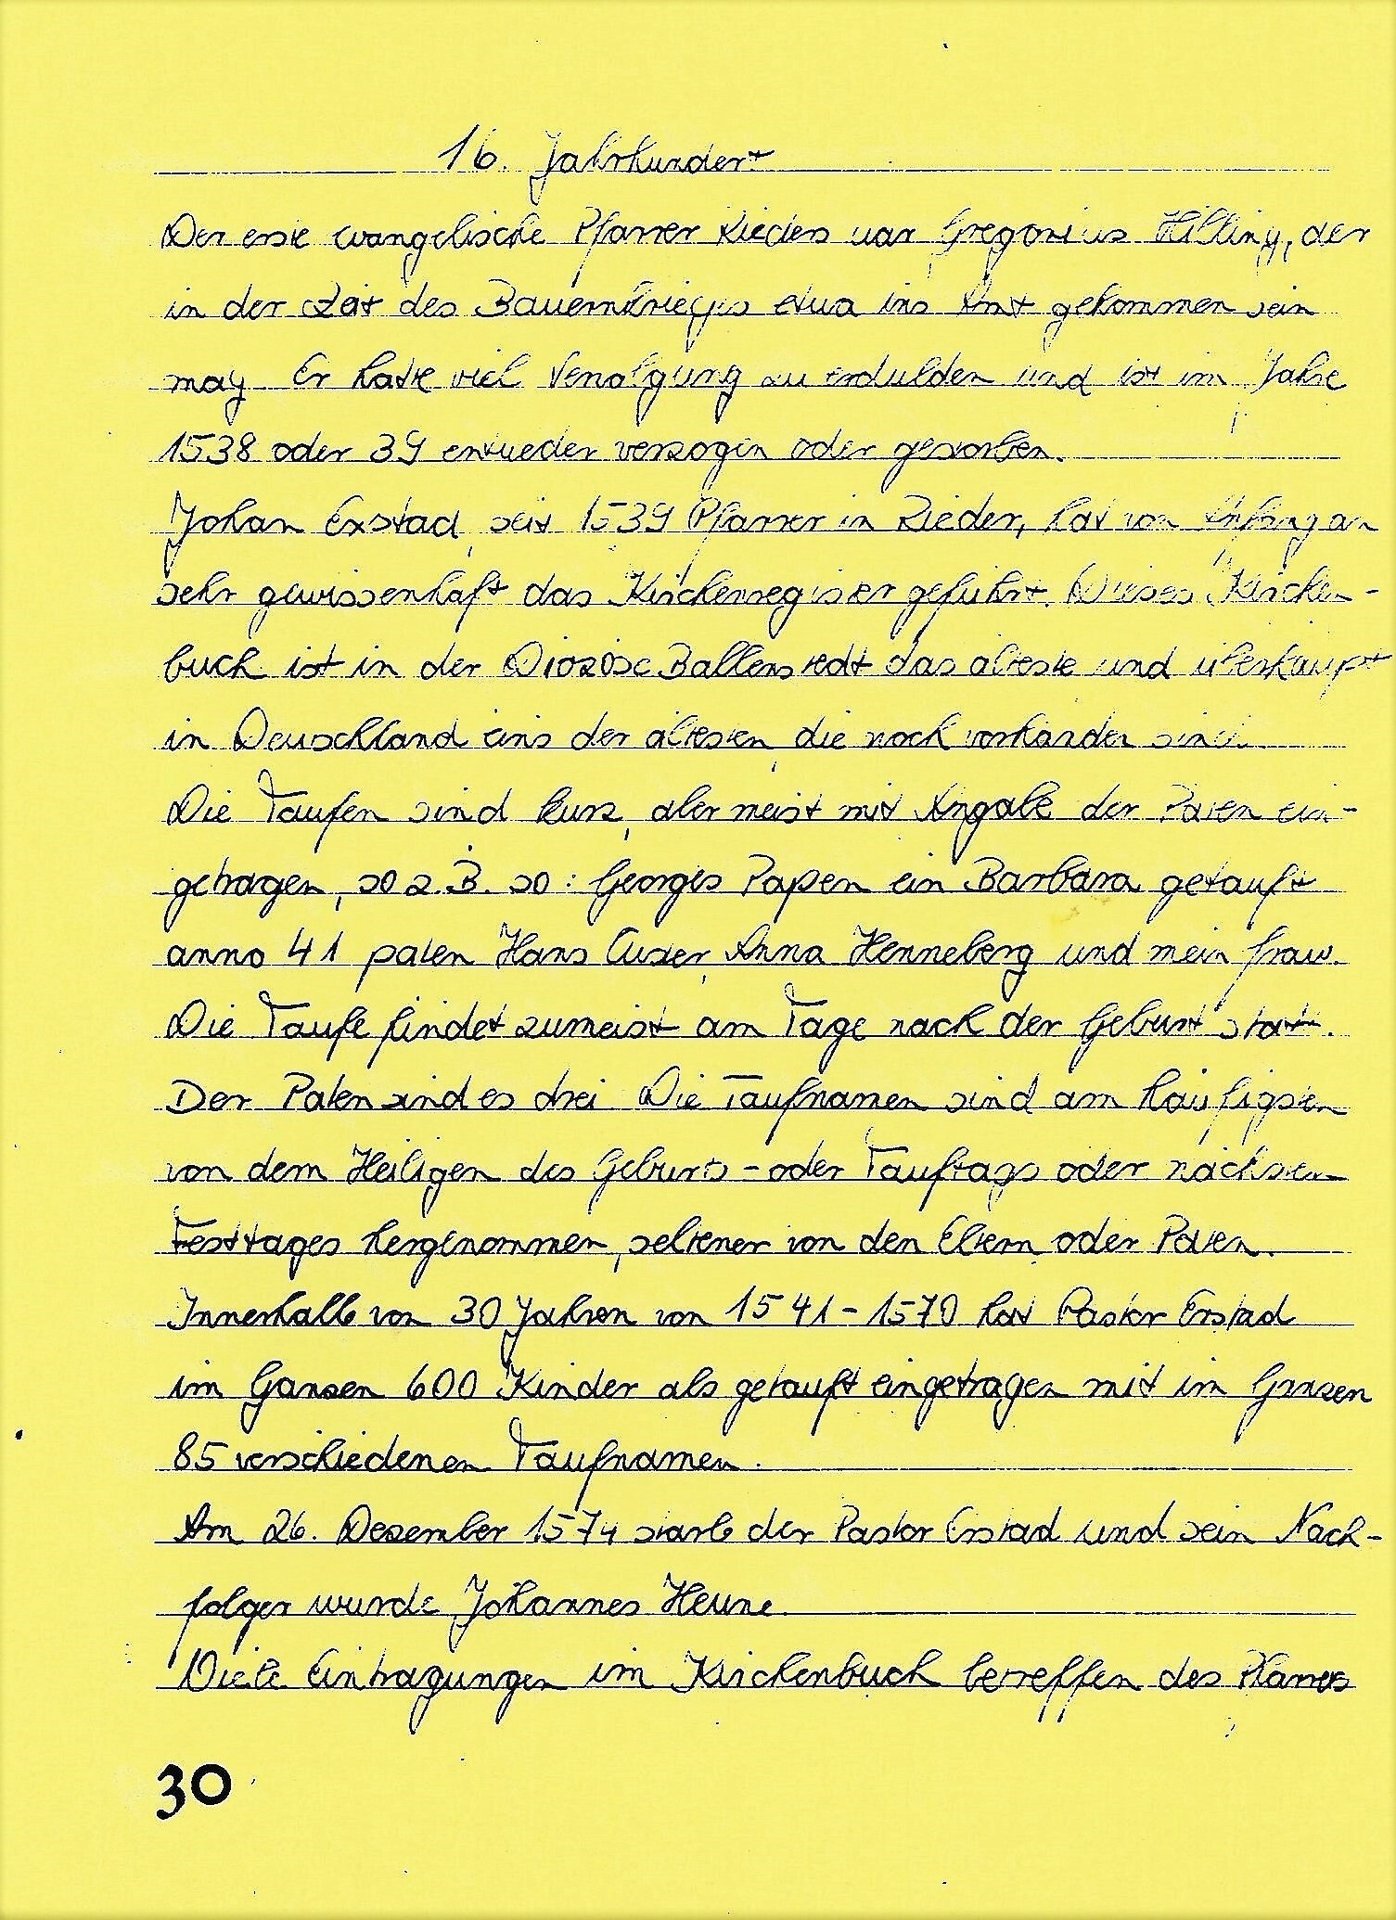 16. Jahrhundert
Der erste evangelische Pfarrer Rieders war Gregorius Hilling, der
in der Zeit des Bauernkrieges etwa ins Amt gekommen sein
mag. Er hatte viel Verfolgung zu erdulden und ist im Jahre
1538 oder 39 entweder verzogen oder gestorben.
Johan Erstad, seit 1539 Pfarrer in Rieder, hat von Anfang an
sehr gewissenhaft das Kirchenregister geführt. Dieses Kirchen-
buch ist in der Diözöse Ballenstedt das älteste und überhaupt
in Deutschland eins der ältesten, die noch vorhanden sind.
Die Taufen sind kurz, aber meist mit Angabe der Paten ein-
getragen, so z. B. so: Georges Papen ein Barbara getauft
anno 41 paten Hans Anna Henneberg und mein fraw.
Die Taufe findet zumeist am Tage nach der Geburt statt.
Der Paten sind es drei. Die Taufnamen sind am häufigsten
von dem Heiligen des Geburts- oder Tauftags oder nächsten
Festtages hergenommen, seltener von den Eltern oder Paten.
Innerhalb von 30 Jahren von 1541-1570 hat Pastor Erstad
im Ganzen 600 Kinder als getauft eingetragen mit im Ganzen
85 verschiedenen Taufnamen.
Am 26. Dezember 1574 starb der Pastor Erstad und sein Nach-
folger wurde Johannes Heune.
Viele Eintragungen im Kirchenbuch betreffen des Pfarrers
30